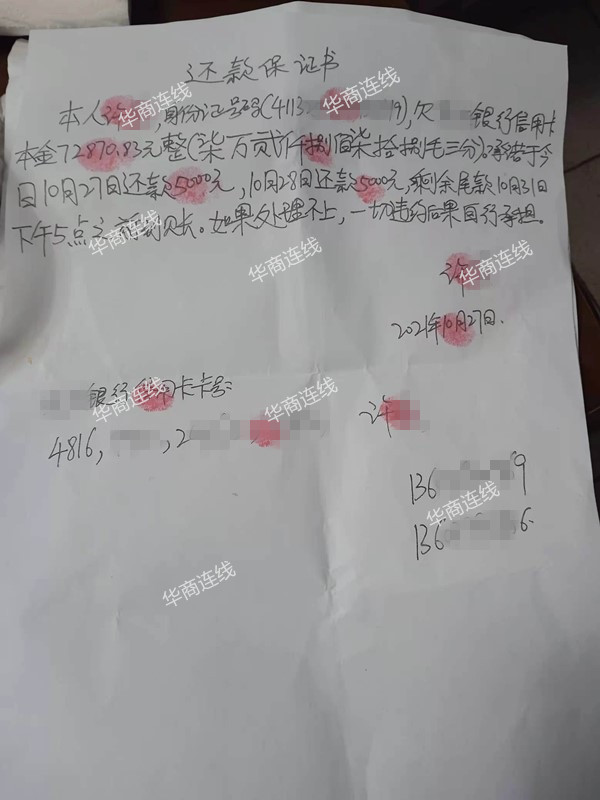 还款保证书
本人许,身份证号码(4113 9),欠 银行信用卡
本金72870.83元整(柒万贰仟捌佰柒拾捌毛三分)。承诺于今
日10月27日还款5000元,10月28日还款5000元,剩余尾款10月31日
下午5点之前到账。如果处理不上,一切违约后果自行承担。
许
2021年10月27日.
银行信用卡卡号:
4816, ,2
许
136 9
136 6.
华商连线
华商连线
华商连线
华商连线
华商连线
华商连线
华商连线
华商连线